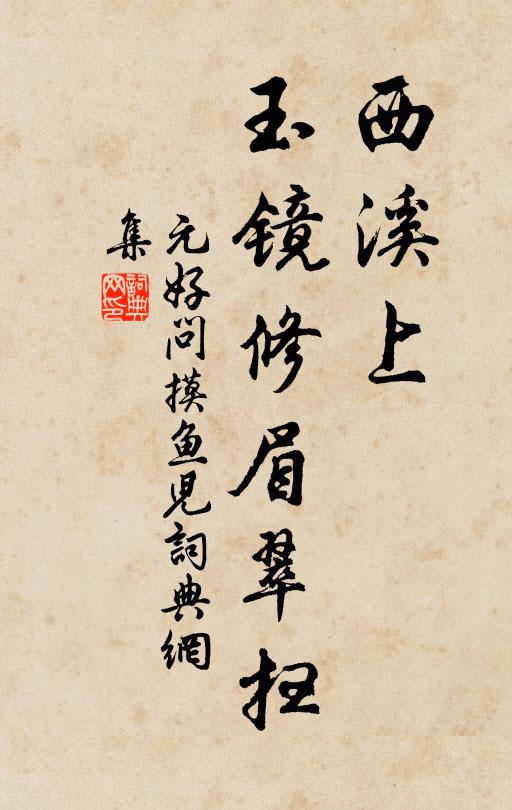 西溪上
玉镜修眉翠扫
元好问摸鱼児詞典網
集
詞典
网印